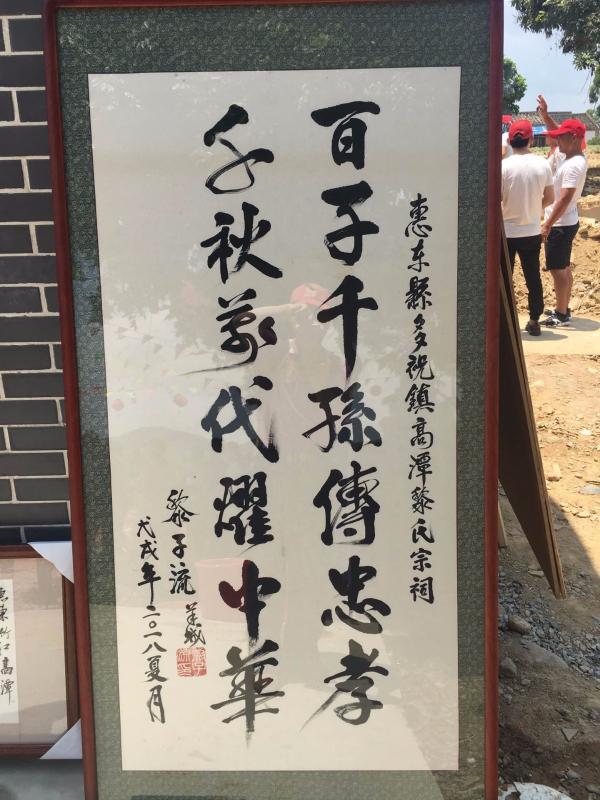 惠东縣多祝鎮高潭黎氏宗祠
百子千孫傳忠孝
千秋萬代耀中華
黎子流 羊城
戊戌年二〇一八夏月
高潭